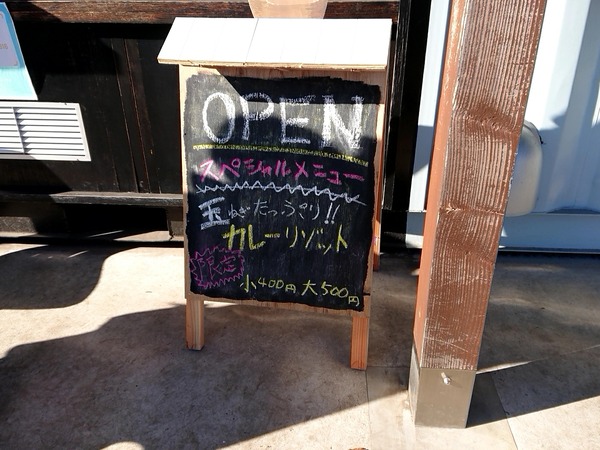 OPEN
スペシャルメニュー
玉ねぎたっぷり!!
カレーリゾット
限定
小400円 大500円